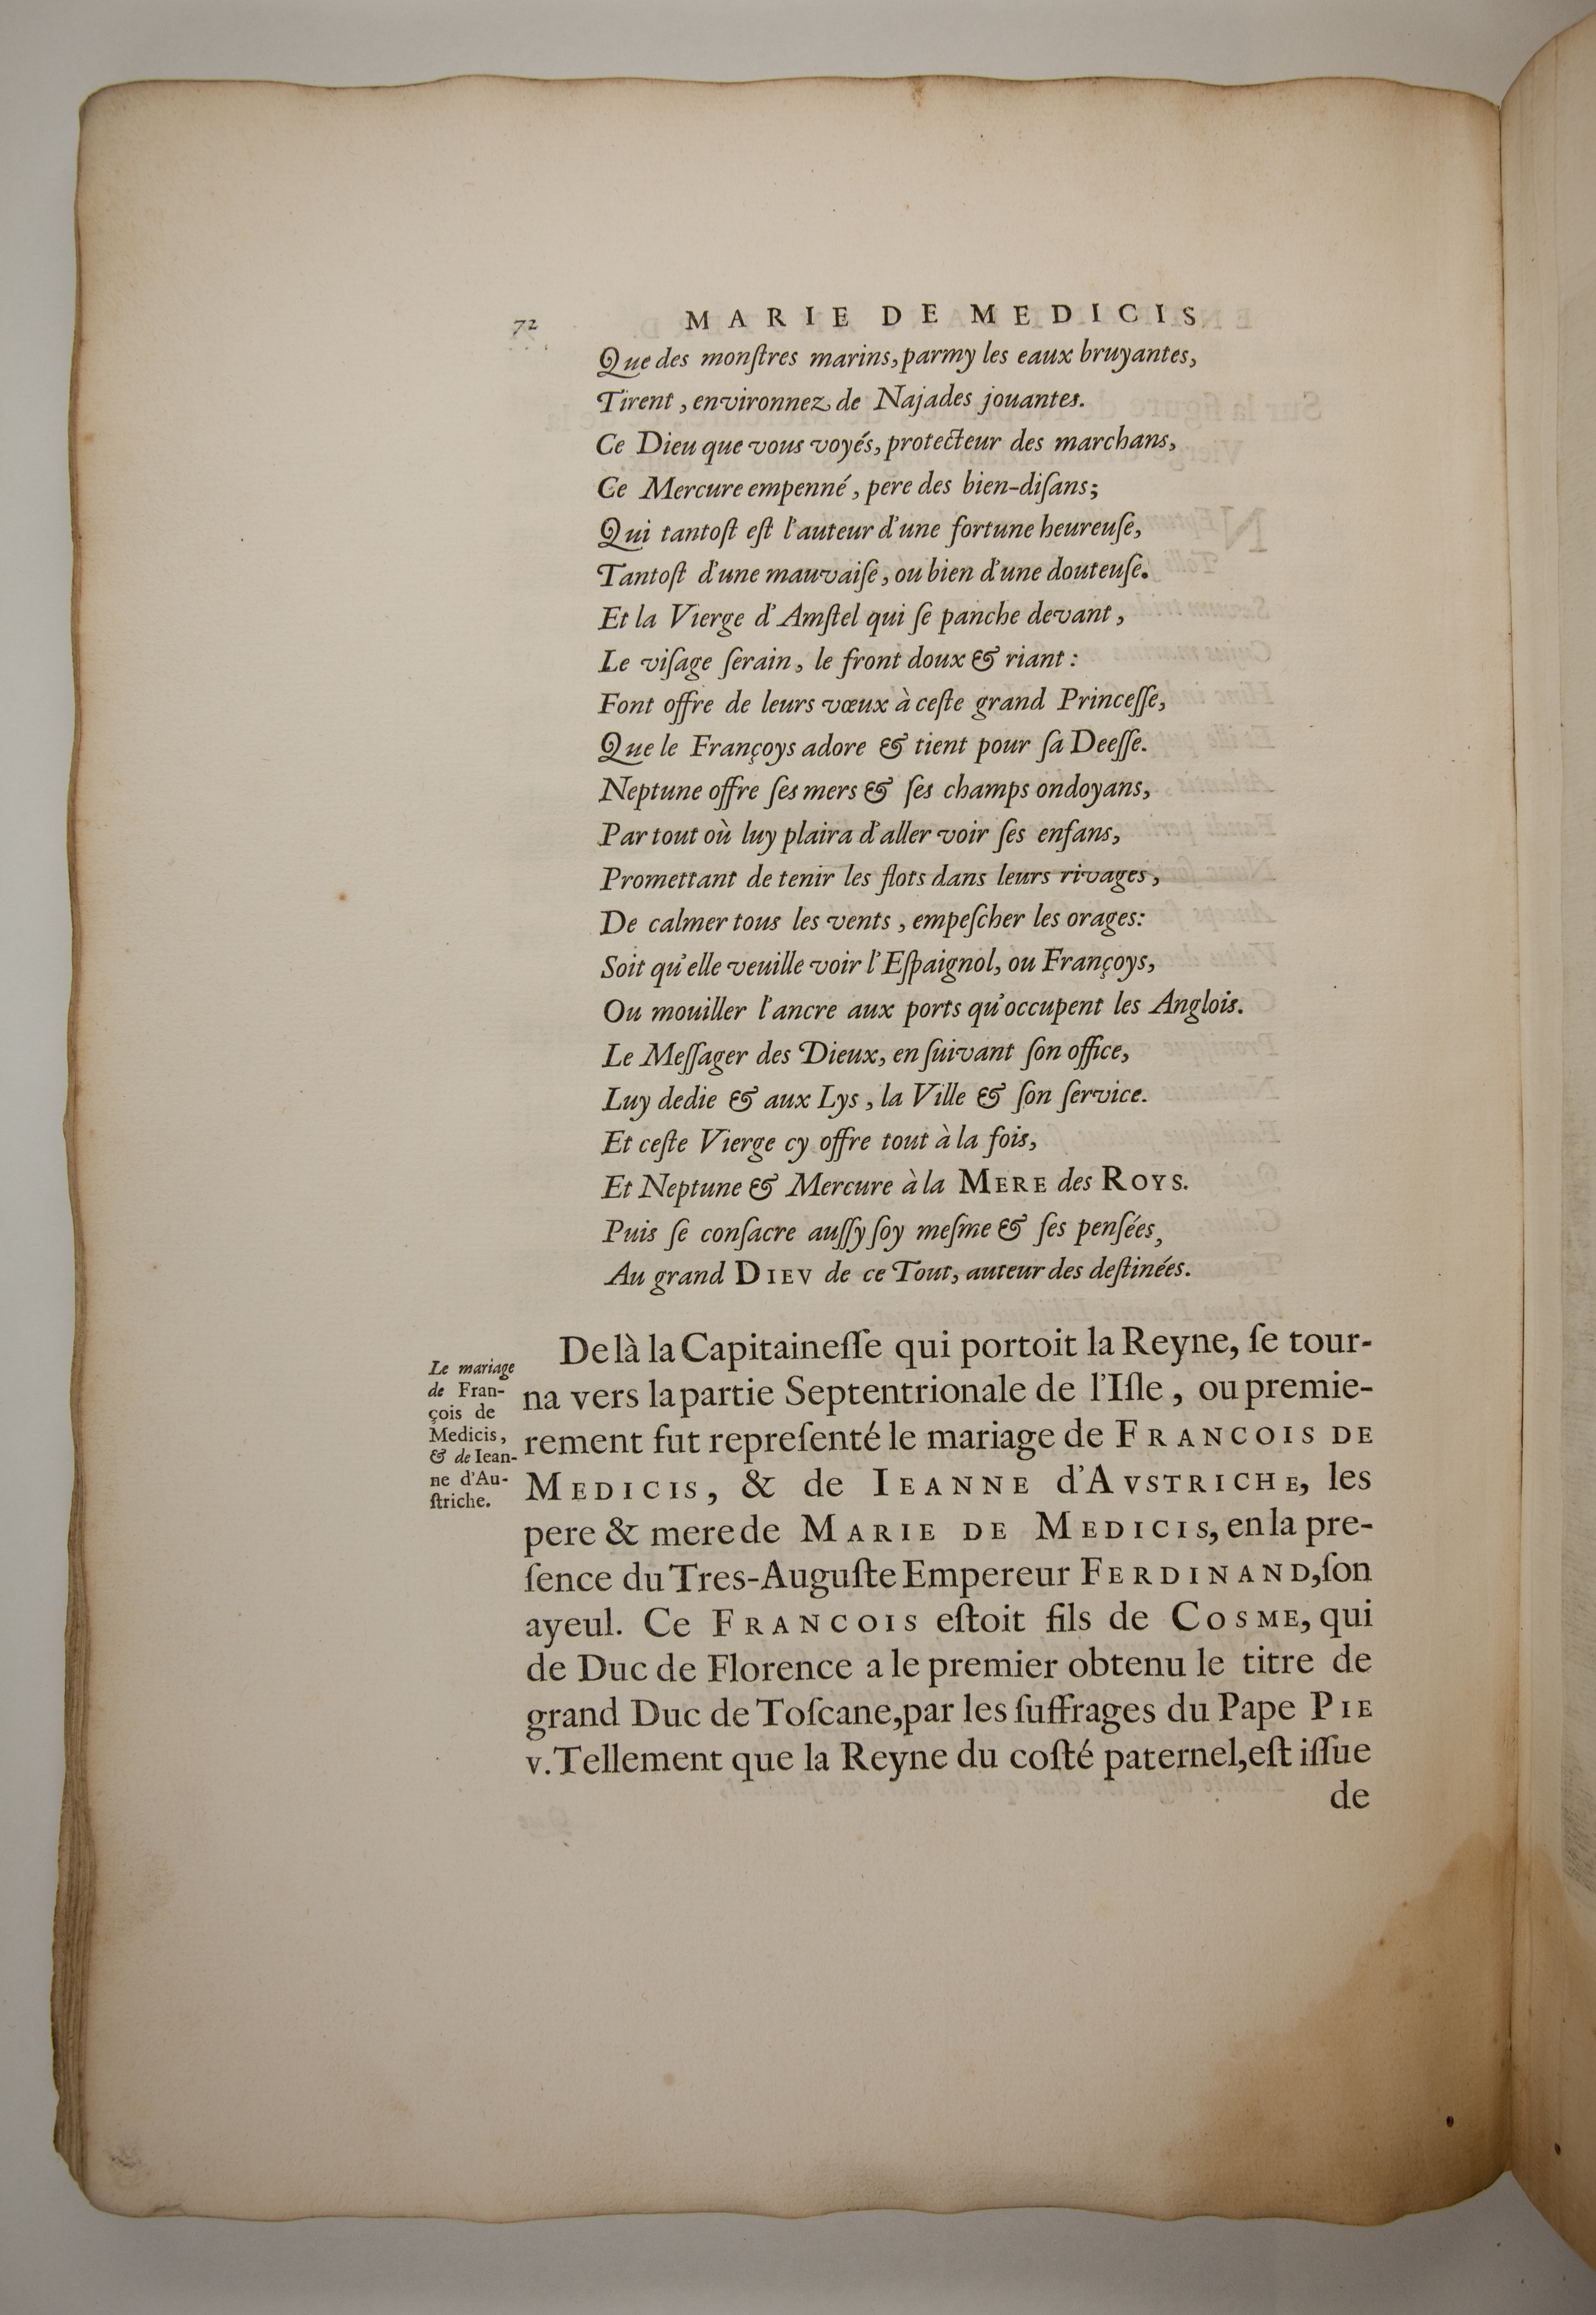 72 MARIE DE MEDICIS
Que des monſtres marins, parmy les eaux bruyantes,
Tirent, environnez de Najades jouantes.
Ce Dieu que vous voyés, protecteur des marchans,
Ce Mercure empenné, pere des bien-diſans;
Qui tantoſt eſt l'auteur d'une fortune heureuſe,
Tantoſt d'une mauvaiſe, ou bien d'une douteuſe.
Et la Vierge d'Amſtel qui ſe panche devant,
Le viſage ſerain, le front doux & riant:
Font offre de leurs vœux à ceſte grand Princeſſe,
Que le Françoys adore & tient pour ſa Deeſſe.
Neptune offre ſes mers & ſes champs ondoyans,
Par tout où luy plaira d'aller voir ſes enfans,
Promettant de tenir les flots dans leurs rivages,
De calmer tous les vents, empeſcher les orages:
Soit qu'elle veuille voir l'Eſpaignol, ou Françoys,
Ou mouiller l'ancre aux ports qu'occupent les Anglois.
Le Meſſager des Dieux, en ſuivant ſon office,
Luy dedie & aux Lys, la Ville & ſon ſervice.
Et ceſte Vierge cy offre tout à la fois,
Et Neptune & Mercure à la MERE des ROYS.
Puis ſe conſacre auſſy ſoy meſme & ſes penſées,
Au grand DIEV de ce Tout, auteur des deſtinées.
De là la Capitaineſſe qui portoit la Reyne, ſe tour-
na vers la partie Septentrionale de l'Iſle, ou premie-
rement fut repreſenté le mariage de FRANCOIS DE
MEDICIS, & de IEANNE d'AVSTRICHE, les
pere & mere de MARIE DE MEDICIS, en la pre-
ſence du Tres-Auguſte Empereur FERDINAND, ſon
ayeul. Ce FRANCOIS eſtoit fils de COSME, qui
de Duc de Florence a le premier obtenu le titre de
grand Duc de Toſcane, par les ſuffrages du Pape PIE
V. Tellement que la Reyne du coſté paternel, eſt iſſue
de
Le mariage
de Fran-
çois de
Medicis,
& de Iean-
ne d'Au-
ſtriche.